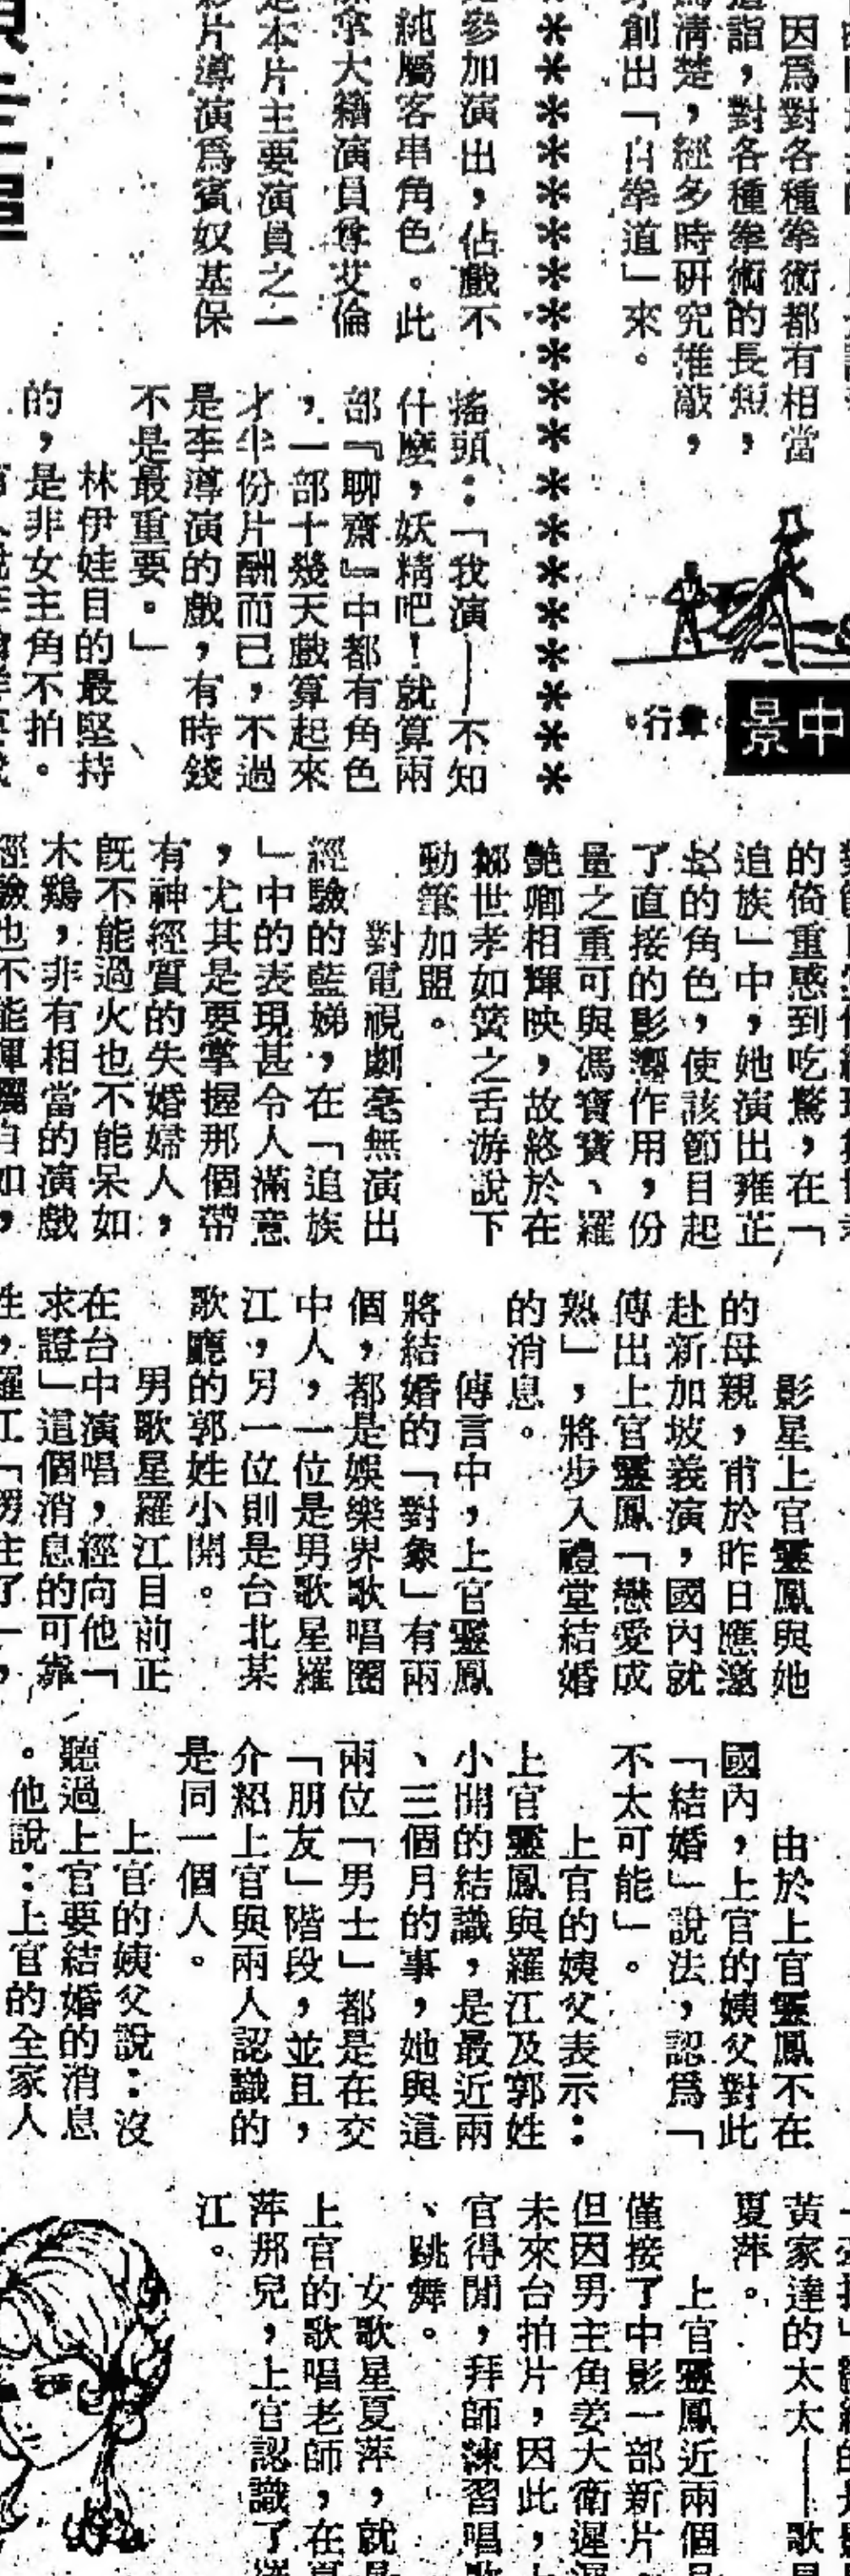 因爲對各種拳術都有相當
造詣，對各種拳術的長短，
爲清楚，經多時研究推敲，
創出「白拳道」來。
＊＊＊＊＊＊＊＊＊＊＊＊＊＊＊＊＊＊
參加演出，佔戲不
純屬客串角色。此
拿大籍演員尊艾倫
是本片主要演員之一
影片導演爲賓奴基保
中景
章行。
搖頭：「我演——不知
什麼，妖精吧！就算兩
部『聊齋』中都有角色
，一部十幾天戲算起來
才半份片酬而已，不過
是李導演的戲，有時錢
不是最重要。」
林伊娃目的最堅持
的，是非女主角不拍。
的倚重感到吃驚，在「
追族」中，她演出雍芷
的角色，使該節目起
了直接的影響作用，份
量之重可與馮寶寶、羅
艷卿相輝映，故終於在
鄒世孝如簧之舌游說下
動筆加盟。
對電視劇毫無演出
經驗的藍娣，在「追族
」中的表現甚令人滿意
，尤其是要掌握那個帶
有神經質的失婚婦人，
既不能過火也不能呆如
木鷄，非有相當的演戲
經驗也不能揮灑自如，
影星上官靈鳳與她
的母親，甫於昨日應邀
赴新加坡義演，國內就
傳出上官靈鳳「戀愛成
熟」，將步入禮堂結婚
的消息。
傳言中，上官靈鳳
將結婚的「對象」有兩
個，都是娛樂界歌唱圈
中人，一位是男歌星羅
江，另一位則是台北某
歌廳的郭姓小開。
男歌星羅江目前正
在台中演唱，經向他「
求證」這個消息的可靠
性，羅江「愣住了」，
由於上官靈鳳不在
國內，上官的姨父對此
「結婚」說法，認爲「
不太可能」。
上官的姨父表示：
上官靈鳳與羅江及郭姓
小開的結識，是最近兩
、三個月的事，她與這
兩位「男士」都是在交
「朋友」階段，並且，
介紹上官與兩人認識的
是同一個人。
上官的姨父說：沒
聽過上官要結婚的消息
。他說：上官的全家人
黃家達的太太——歌星
夏萍。
上官靈鳳近兩個月
僅接了中影一部新片，
但因男主角姜大衛遲遲
未來台拍片，因此，上
官得閒，拜師練習唱歌
、跳舞。
女歌星夏萍，就是
上官的歌唱老師，在夏
萍那兒，上官認識了羅
江。